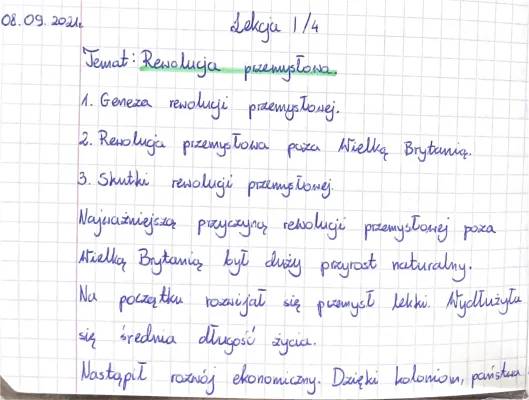 08.09.2021r. Lekcja 1/4
Temat: Rewolucja przemysłowa.
1. Geneza rewolucji przemysłowej.
2. Rewolucja przemysłowa poza Wielką Brytanią.
3. Skutki rewolucji przemysłowej.
Najważniejszą przyczyną rewolucji przemysłowej poza
Wielką Brytanią był duży przyrost naturalny.
Na początku rozwijał się przemysł lekki. Wydłużyła
się średnia długość życia.
Nastąpił rozwój ekonomiczny. Dzięki koloniom, państwa